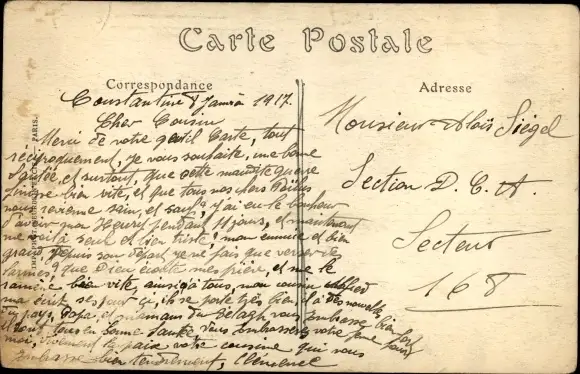 Carte Postale
Correspondance
Adresse
Constantine 8 Janvier 1917.
Cher Cousin
Merci de votre gentil Carte, tout
réciproquement, je vous souhaite, une bonne
Santée, et surtout, que cette maudite guerre
finisse bien vite, et que tous nos chers Poilus
nous revienne sain, et sauf, j'ai eu le bonheur
d'avoir mon Henri pendant 11 jours, et maintenant
me voilà seul et bien triste, mon ennuie et bien
grand, depuis son départ je ne fais que verser de
larmes, que Dieu écoute mes prière, et me le
ramène bien vite, ainsi à tous, mon cousin
ma écrit ses jour çi, il se porte très bien, il a des nouvelles
du pays, Papa, et maman du vous Embrasse bien fort
et sont tous en bonne Santée vous Embrasserez votre femme pour
moi, vivement la paix votre cousine qui vous
Embrasse bien tendrement, Clémence
Monsieur Aloïs Siégel
Section D. C. A.
Secteur
168
PARIS.